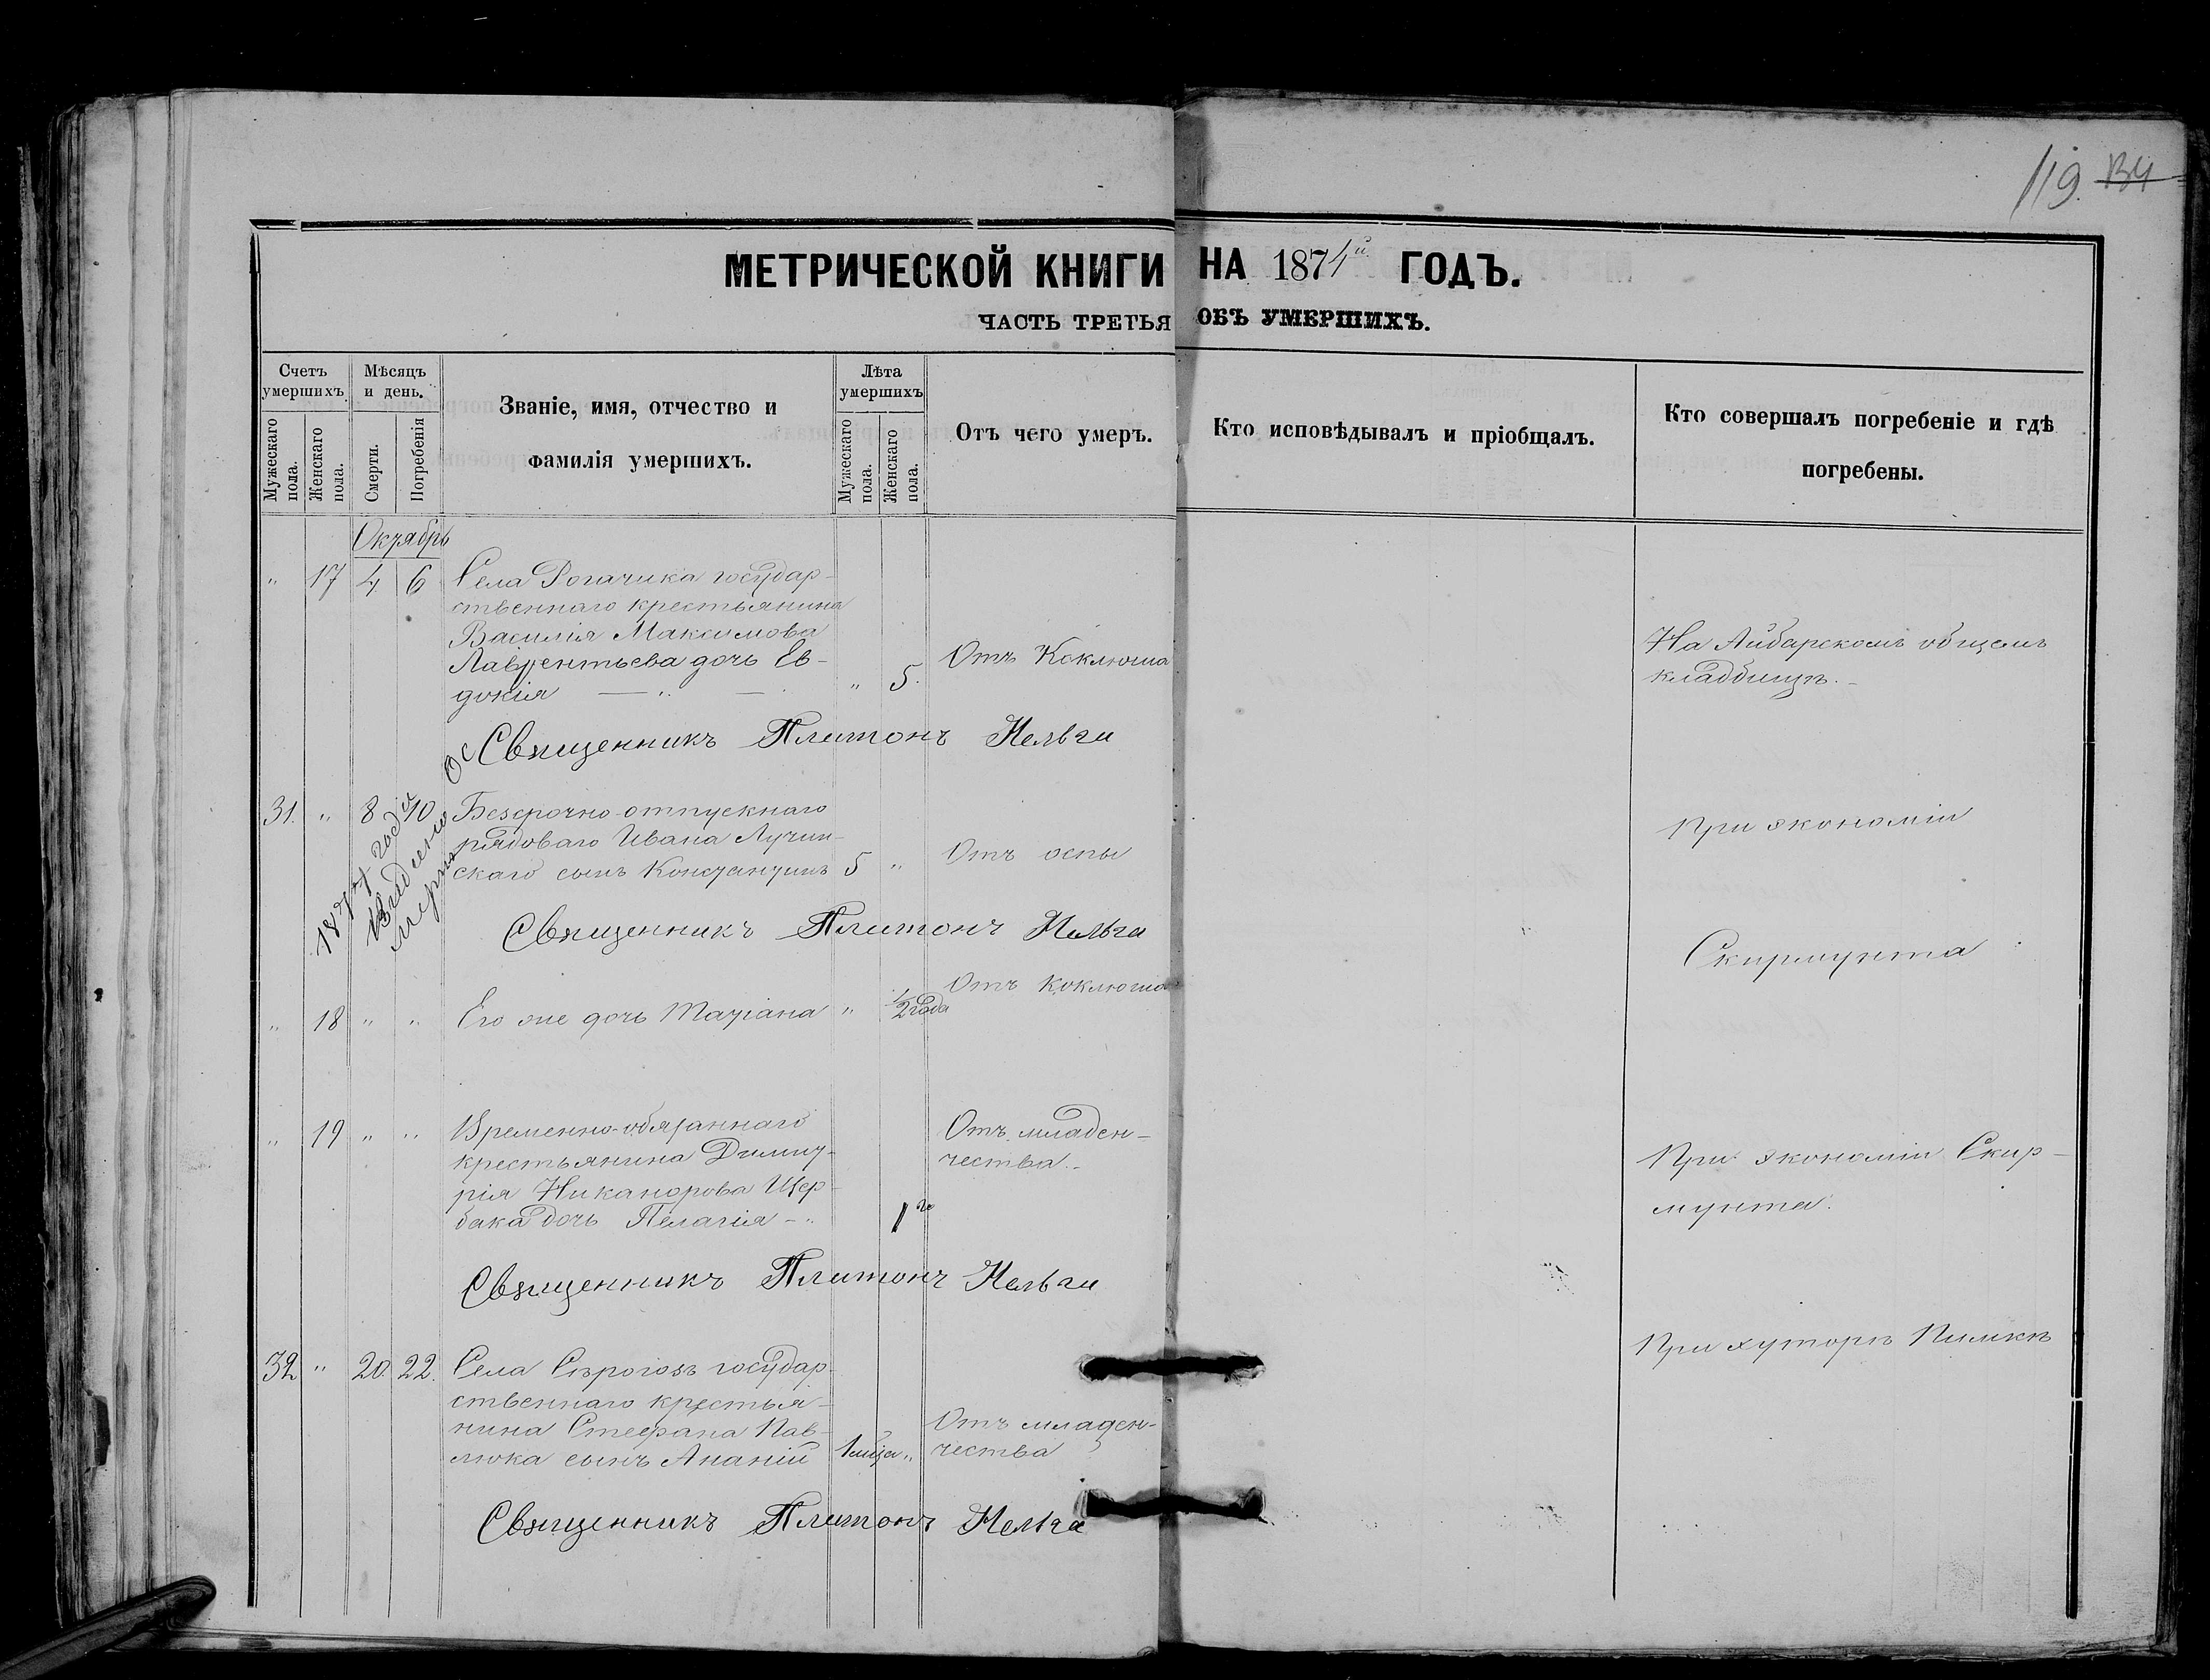 119. 134
МЕТРИЧЕСКОЙ КНИГИ НА 1874й ГОДЪ.
ЧАСТЬ ТРЕТЬЯ ОБЪ УМЕРШИХЪ.
Счетъ умершихъ.
Мужескаго пола.
Женскаго пола.
Мѣсяцъ и день.
Смерти.
Погребенія
Званіе, имя, отчество и
фамилія умершихъ.
Лѣта умершихъ
Мужескаго пола.
Женскаго пола.
Отъ чего умеръ.
Кто исповѣдывалъ и пріобщалъ.
Кто совершалъ погребеніе и гдѣ
погребены.
Октябрь
" 17 4 6 Села Рогачика государ-
ственнаго крестьянина
Василія Максимова
Лаврентьева дочь Ев-
докія " 5. Отъ Коклюша
На Айбарскомъ общемъ
кладбищѣ.
Священникъ Платонъ Кельги
31. " 8 10 Безсрочно-отпускнаго
рядоваго Ивана Лучин-
скаго сынъ Константинъ 5 " Отъ оспы
При экономіи
Скирмунта
1874 года
Священникъ Платонъ Кельги
" 18 " " Его же дочь Татіана " 1/2 года Отъ коклюша
" 19 " " Временно-обязаннаго
крестьянина Димит-
рія Никанорова Щер-
бака дочь Пелагія 1го
Отъ младен-
чества
При экономіи Скир-
мунта.
Священникъ Платонъ Кельги
32 " 20. 22. Села Сѣрогозъ государ-
ственнаго крестья-
нина Стефана Пав-
люка сынъ Ананій "
Отъ младен-
чества
При хуторѣ
Священникъ Платонъ Кельги